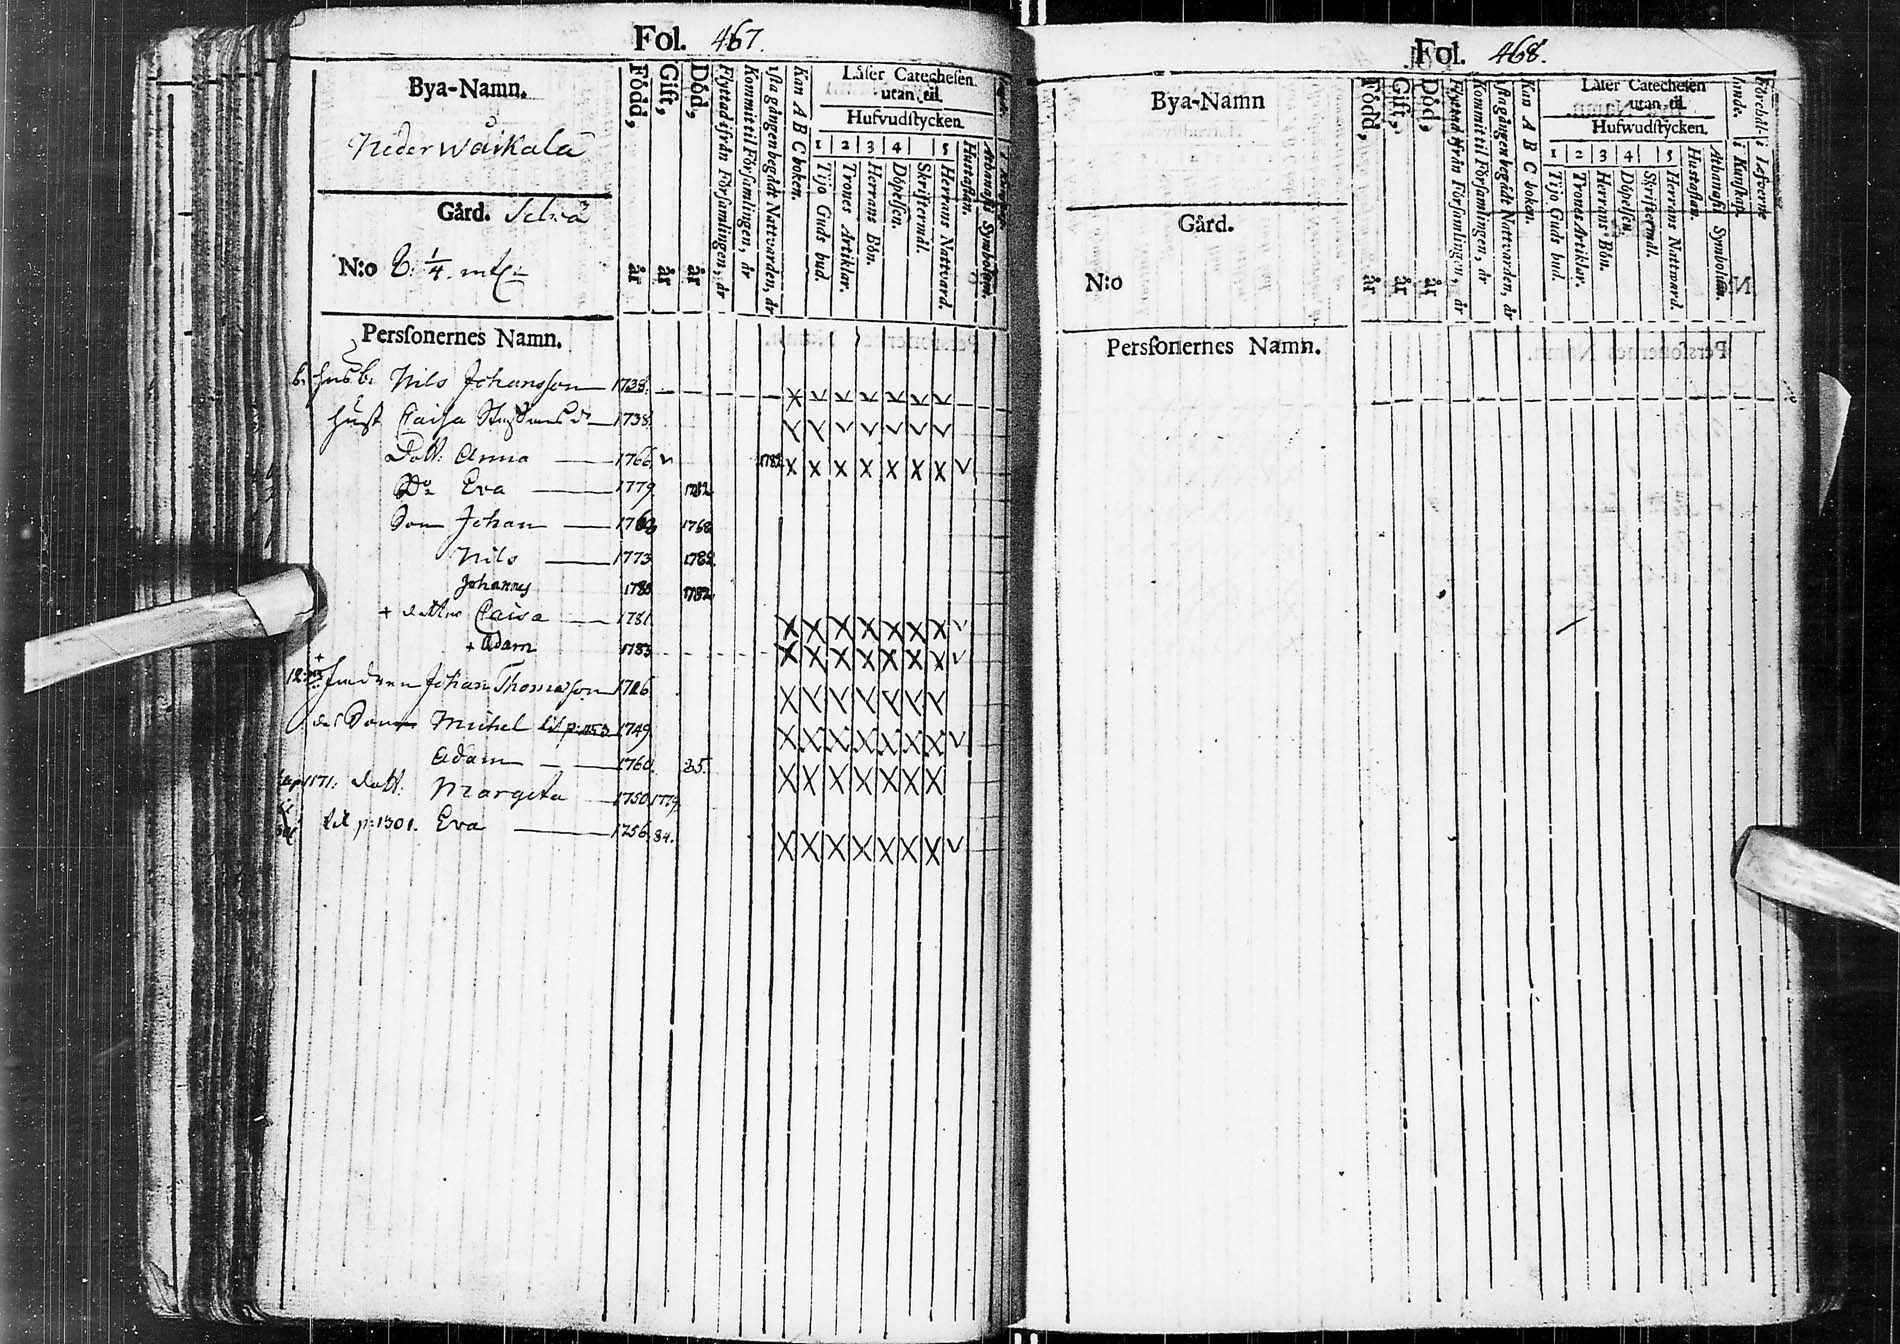 Fol. 467.
Bya-Namn.
Neder Waikala
Gård.
N:o 8. 1/4. mtl
Född, år
Gift, år
Död, år
Flyttad ifrån Församlingen, år
Kommit til Församlingen, år
1sta gången begådt Nattvarden, år
Kan A B C boken.
Läser Catechesen
utan til.
Hufvudstycken.
1 2 3 4 5
Tijo Guds bud.
Trones Artiklar.
Herrans Bön.
Döpelsen.
Skriftermål.
Herrans Nattvard.
Hustaflan.
Athanasii Symbolum.
Personernes Namn.
Nils Johansson 1738.
Hust Caisa 1738.
Dott: Anna 1766 1782
Do Eva 1779 1782
Son Johan 1768
Nils 1773 1782
Johannes 1782
+ dotter Caisa 1781
+ Adam 1783
Johan Thomasson 1726
Michel 1749
Adam 1760. 85.
Dott: Margeta 1750 1779
til p: 1301. Eva 1756 84.
Fol. 468.
Bya-Namn
Gård.
N:o
Född, år
Gift, år
Död, år
Flyttad ifrån Församlingen, år
Kommit til Församlingen, år
1sta gången begådt Nattvarden, år
Kan A B C boken.
Läser Catechesen
utan til.
Hufwudstycken.
1 2 3 4 5
Tijo Guds bud.
Trones Artiklar.
Herrans Bön.
Döpelsen.
Skriftermål.
Herrans Nattward.
Hustaflan.
Athanasii Symbolum.
Förehållande. i Kunskap.
i Lefverne
Personernes Namn.